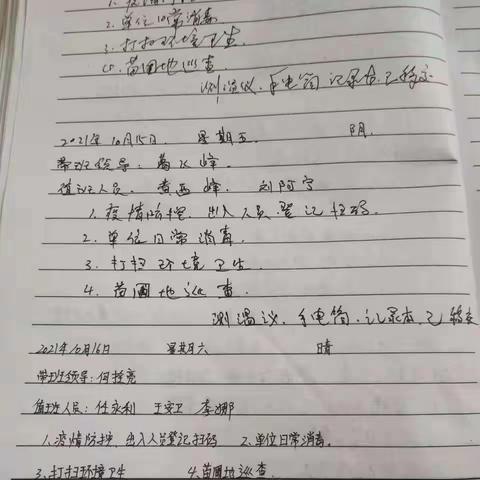 2. 单位日常消毒
3. 打扫环境卫生.
4. 苗圃地巡查.
测温仪、手电筒 记录本 已移交
2021年10月15日. 星期五 阴.
带班领导: 峰.
值班人员. 峰. 刘阿宁
1. 疫情防控, 出入人员登记扫码.
2. 单位日常消毒.
3. 打扫环境卫生.
4. 苗圃地巡查.
测温议、手电筒、记录本, 已移交
2021年10月16日 星期六 晴
带班领导: 何拴亮
值班人员: 任永利 王安卫 李娜
1. 疫情防控, 出入人员登记扫码 2. 单位日常消毒.
3. 打扫环境卫生 4. 苗圃地巡查.